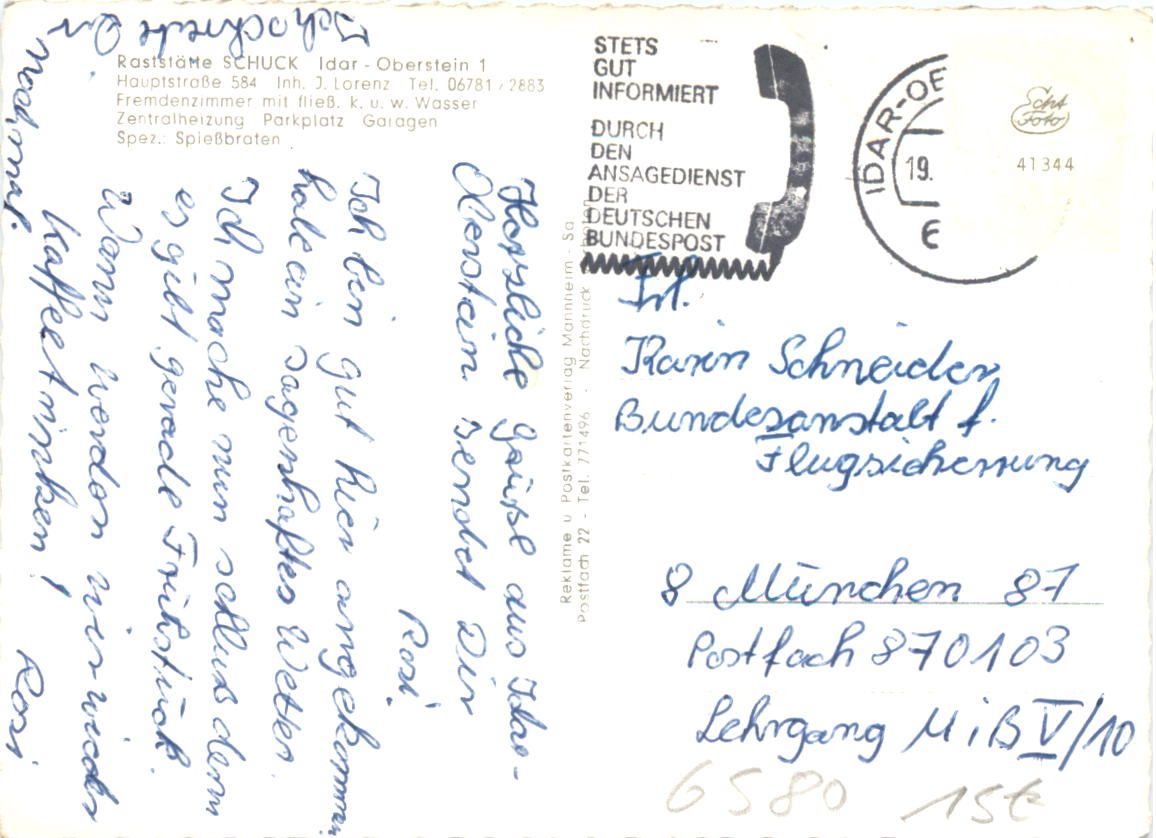 Raststätte SCHUCK Idar-Oberstein 1
Hauptstraße 584 Inh. J. Lorenz Tel. 06781/2883
Fremdenzimmer mit fließ. k. u. w. Wasser
Zentralheizung Parkplatz Garagen
Spez.: Spießbraten
Herzliche Grüße aus Idar-
Oberstein sendet Dir
Rosi
Ich bin gut hier angekommen
habe ein sagenhaftes Wetter.
Ich mache nun schluß denn
es gibt gerade Frühstück.
Wann werden wir wieder
Kaffeetrinken! Rosi
Ich schreibe Dir
nochmal.
Reklame u Postkartenverlag Mannheim - Sa
Postfach 22 - Tel. 771496 - Nachdruck
STETS
GUT
INFORMIERT
DURCH
DEN
ANSAGEDIENST
DER
DEUTSCHEN
BUNDESPOST
IDAR-OBE
19.
Foto
41344
Frl.
Karin Schneider
Bundesanstalt f.
Flugsicherung
8 München 87
Postfach 870103
Lehrgang MiB V/10
6580 15€